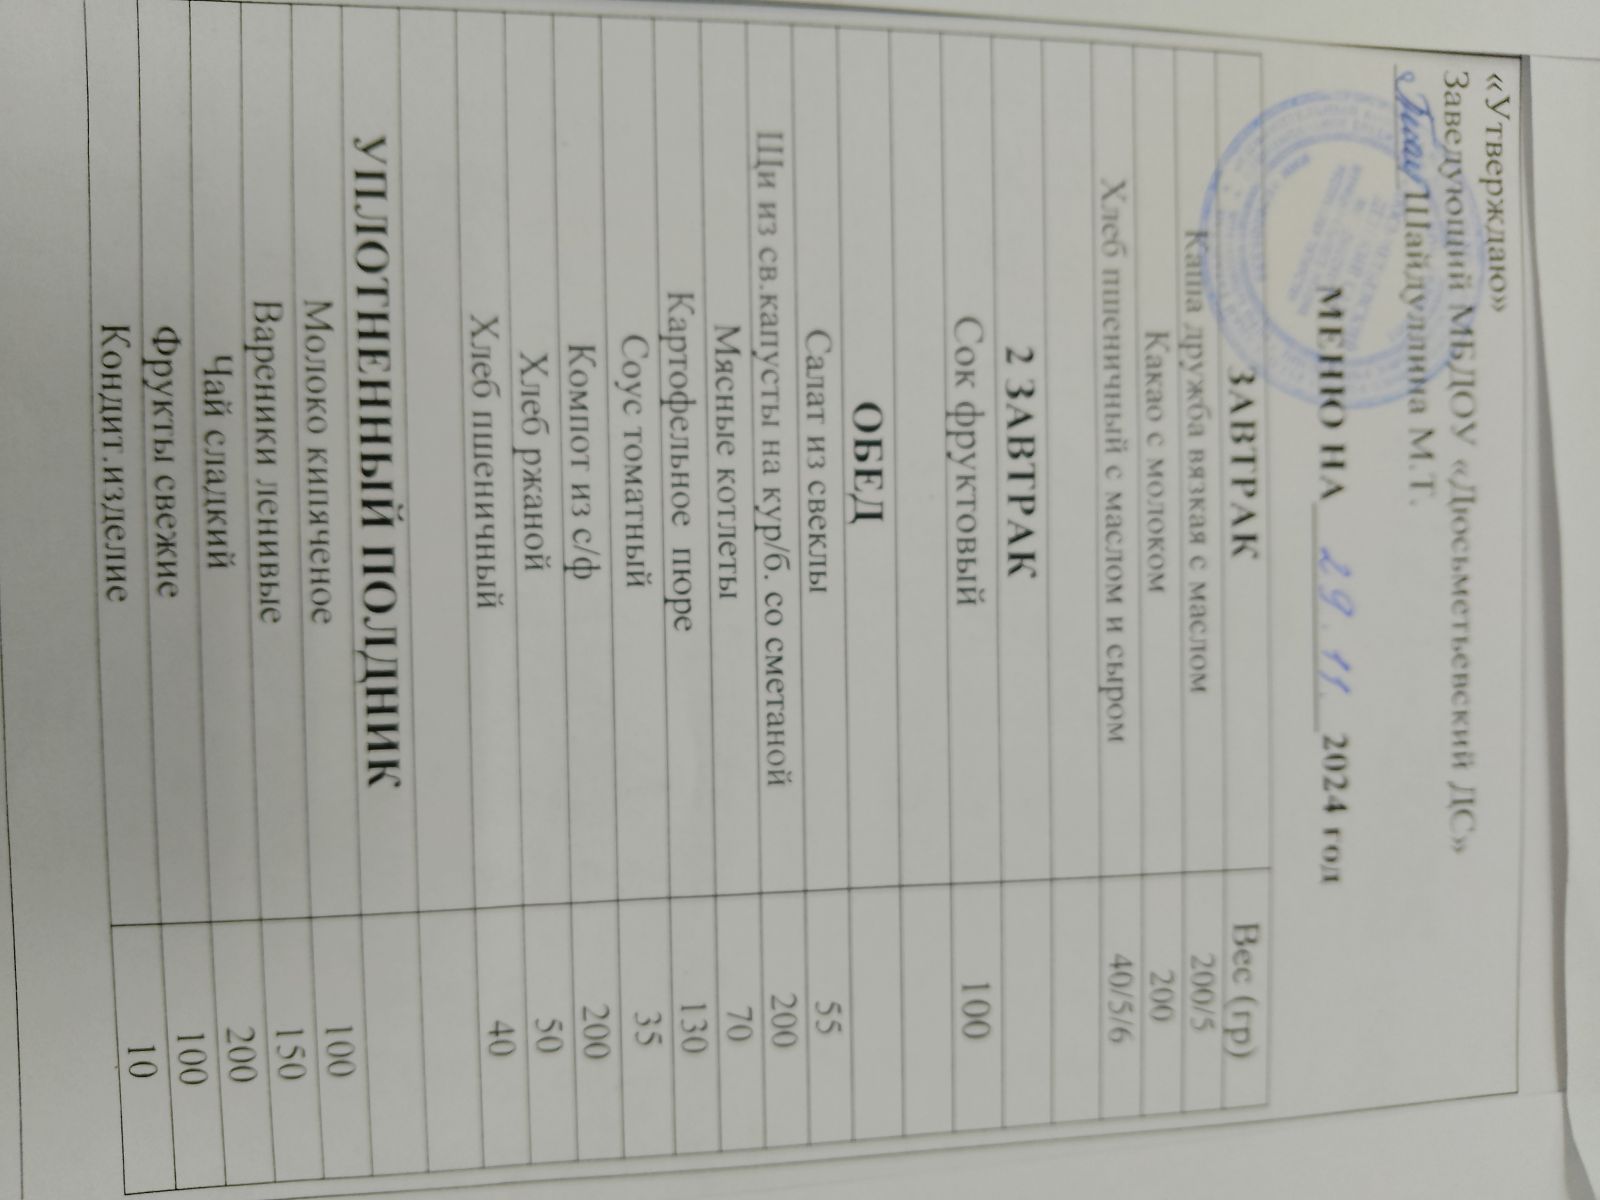 «Утверждаю»
Заведующий МБДОУ «Дюсьметьевский ДС»
Шайдуллина М.Т.
МЕНЮ НА 29.11. 2024 год
ЗАВТРАК Вес (гр)
Каша дружба вязкая с маслом 200/5
Какао с молоком 200
Хлеб пшеничный с маслом и сыром 40/5/6
2 ЗАВТРАК
Сок фруктовый 100
ОБЕД
Салат из свеклы 55
Щи из св.капусты на кур/б. со сметаной 200
Мясные котлеты 70
Картофельное пюре 130
Соус томатный 35
Компот из с/ф 200
Хлеб ржаной 50
Хлеб пшеничный 40
УПЛОТНЕННЫЙ ПОЛДНИК
Молоко кипяченое 100
Вареники ленивые 150
Чай сладкий 200
Фрукты свежие 100
Кондит.изделие 10